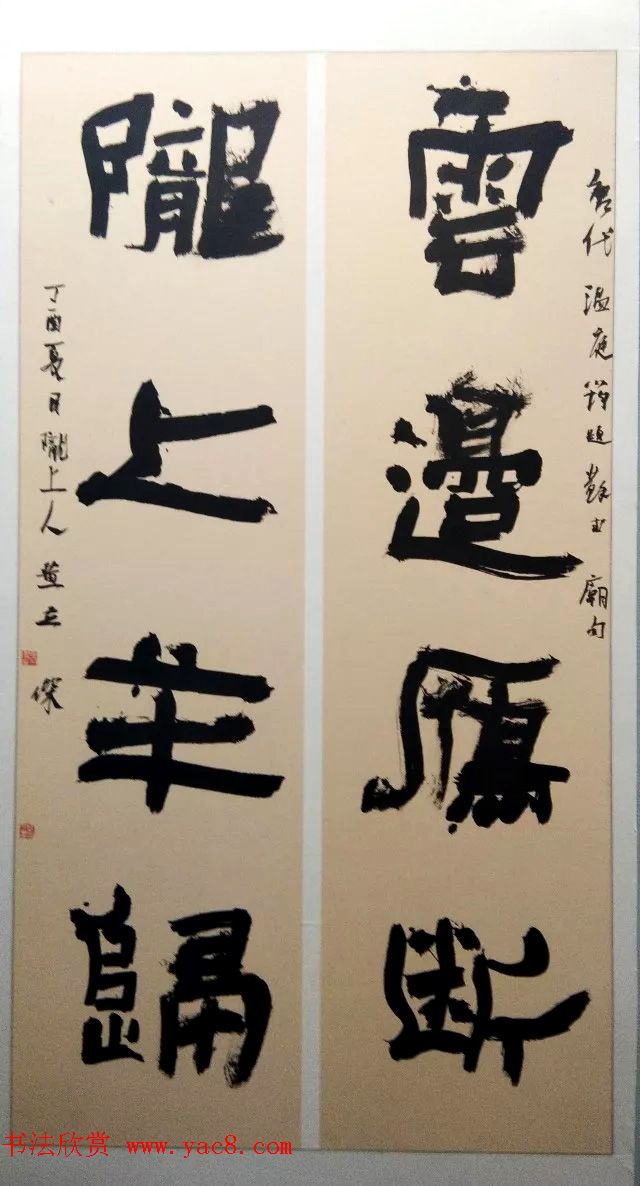 唐代温庭筠題蘇武廟句
雲邊鴈斷
隴上羊歸
丁酉夏日隴上人董立傑
书法欣赏 www.yac8.com